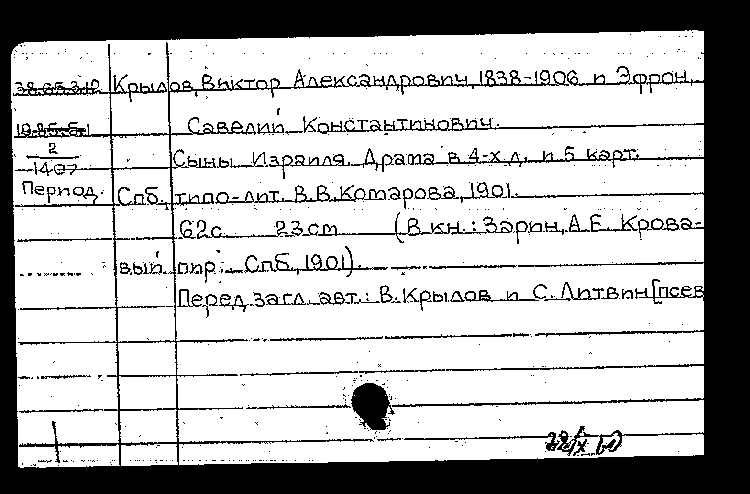 38.65.3.12 Крылов, Виктор Александрович, 1838-1906 и Эфрон,
Савелий Константинович.
2
1407
Сыны Израиля. Драма в 4-х д. и 5 карт.
Период. Спб., типо-лит. В.В.Комарова, 1901.
62с. 23cm (В кн.: Зарин, А.Е. Крова-
вый пир. Спб., 1901).
Перед загл. авт.: В.Крылов и С.Литвин [псев